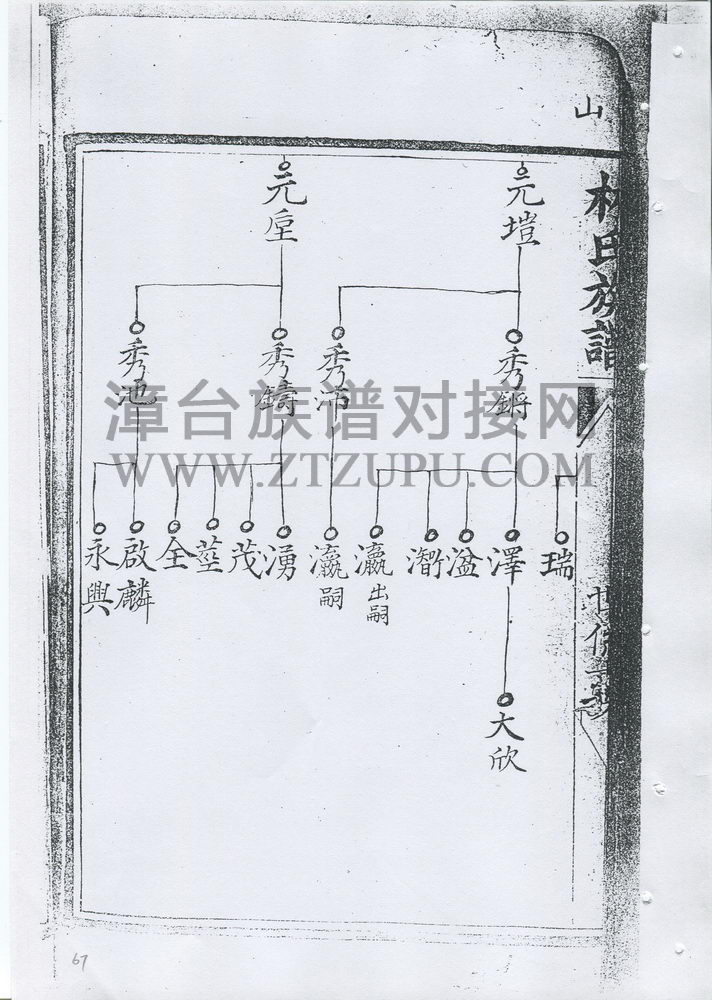 山
林氏族譜
元塏
元垕
秀鏘
秀沛
秀鑄
秀池
瑞
澤
溢
瀛出嗣
瀛嗣
湧
茂
莖
全
啟麟
永興
大欣
漳台族谱对接网
WWW.ZTZUPU.COM
67